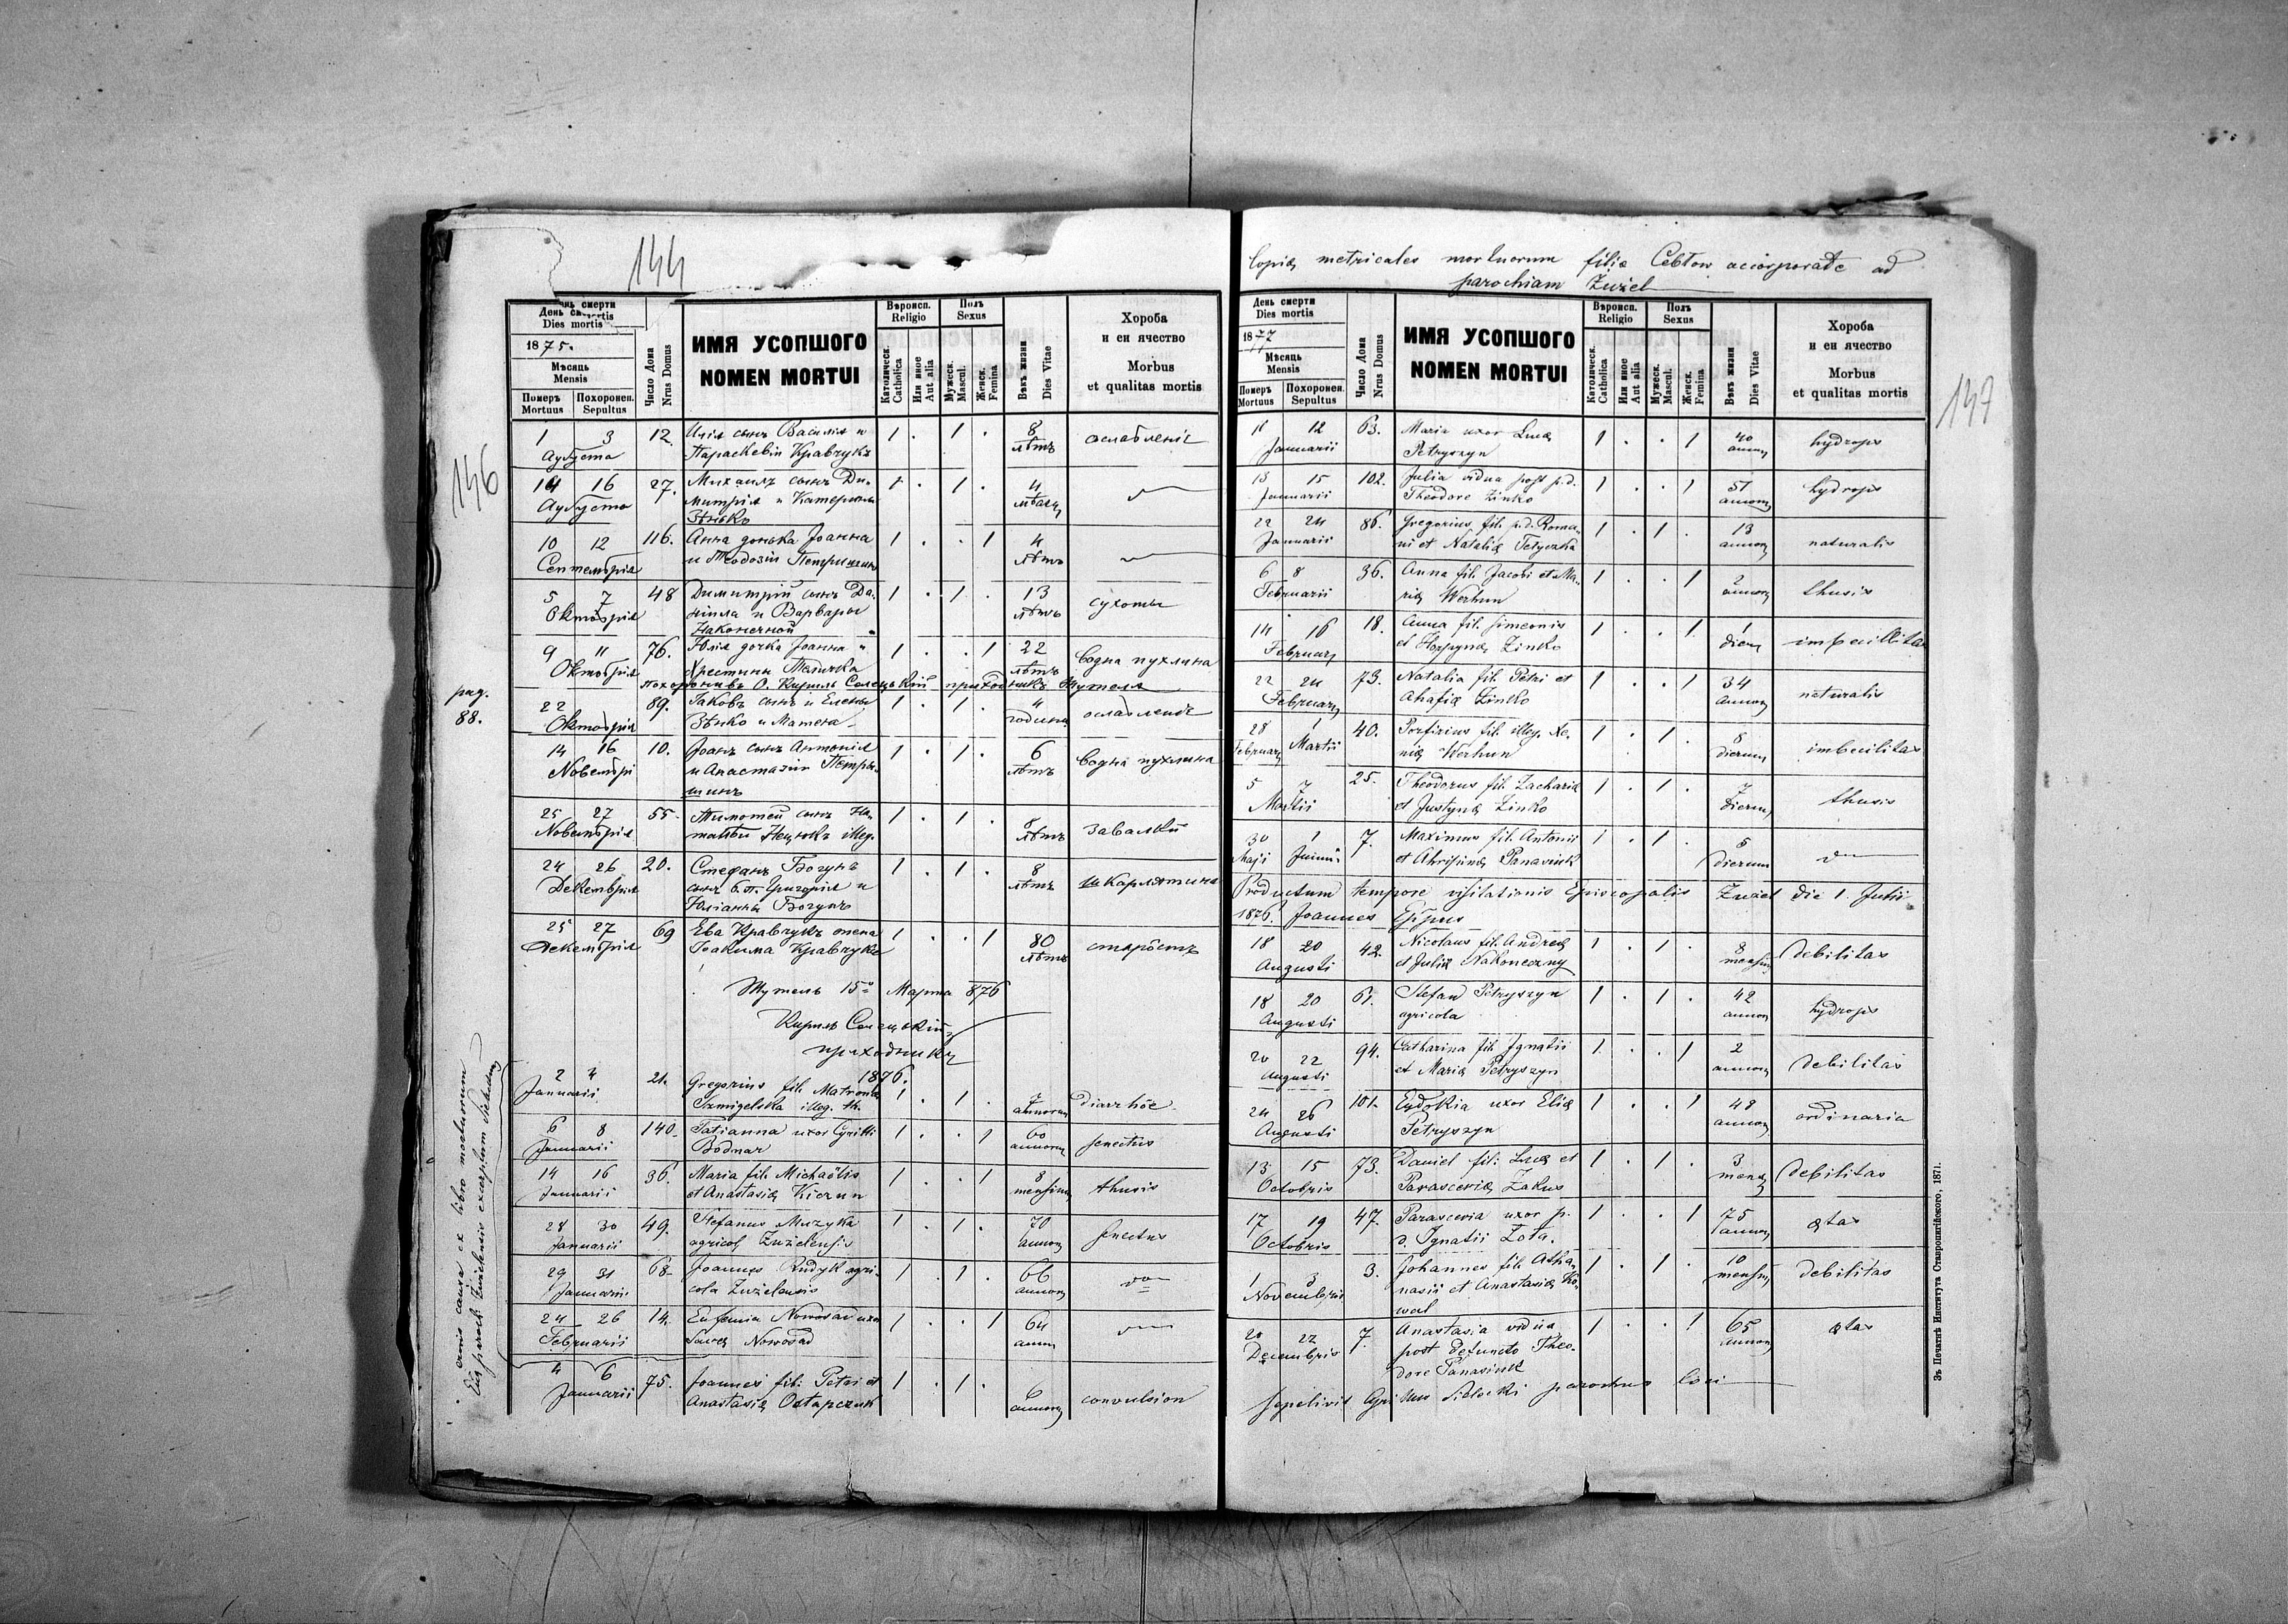 144
День смерти
Dies mortis
1875.
Мѣсяць
Mensis
Померъ Похоронен.
Mortuus Sepultus
Число Дома
Nrus Domus
ИМЯ УСОПШОГО
NOMEN MORTUI
Вѣроисп.
Religio
Католическ.
Catholica
Или иное
Aut alia
Полъ
Sexus
Мужеск.
Mascul.
Женск.
Femina
Вѣкъ жизни
Dies Vitae
Хороба
и еи ячество
Morbus
et qualitas mortis
146
1 3 12. Илія сынъ Василія и 1 . 1 . 8 ослабленіє
Аугуста Параскевіи Кравчукъ лѣтъ
14 16 27. Михаилъ сынъ Ди- 1 . 1 . 4
Аугуста митрія и Катерины
Зѣнько
10 12 116. Анна донька Іоанна 1 . . 1 4
Септембрія и Теодозіи Петришинъ лѣтъ
5 7 48 Димитрій сынъ Да- 1 . 1 . 13 сухоты
Октобрія ніила и Варвары лѣтъ
Наконечной
9 11 76. Юлія дочка Іоанна и 1 . . 1 22 водна пухлина
Октобрія Христины лѣтъ
похоронивъ О. Кирилъ Селецькій приходникъ Жутеля
pag.
88.
22 89. Іаковъ сынъ Елены 1 . 1 . 4 ослабленіє
Октобрія Зѣнько годины
14 16 10. Іоанъ сынъ Антонія 1 . 1 . 6 водна пухлина
Новембрі и Анастазіи Петри- лѣтъ
шинъ
25 27 55. Тимотей сынъ На- 1 . 1 . 8
Новембрія таліи illeg. лѣтъ
24 26 20. Стефанъ Богунъ 1 . 1 . 8 шкарлятина
Декембрія сынъ б.п. Григорія и лѣтъ
Юліанны Богунъ
25 27 69 Ева Кравчукъ жена 1 . . 1 80 старôсть
Декембрія Іоакима Кравчука лѣтъ
Жутель 15го Марта 876
Кирилъ Селецькій
приходникъ
1876.
2 4 21. Gregorius fil. Matrona 1 . 1 . 7 diarrhöe
Januarii Szmigelska illeg. th. annorum
6 8 140. Tatianna uxor Cyrilli 1 . . 1 60 senectus
Januarii Bodnar annorum
14 16 36. Maria fil. Michaëlis 1 . . 1 8 thusis
Januarii et Anastasiæ Kierun mensium
28 30 49. Stefanus Muzyka 1 . 1 . 70 senectus
Januarii agricola Żużelensis annor
29 31 68. Joannes Rudyk agri- 1 . 1 . 66
Januarii cola Żużelensis annor
24 26 14. Eufemia Nowosad uxor 1 . . 1 64
Februarii Sawæ Nowosad annor
4 6 75. Joannes fil: Petri et 1 . 1 . 6 convulsion
Januarii Anastasiæ Ostapczuk annor
causa ex libro mortuorum
Żużelensis excerptum
Copiæ metricales mortuorum filiæ Cebłow accorporate ad
parochiam Żużel
147
День смерти
Dies mortis
1877
Мѣсяць
Mensis
Померъ Похоронен.
Mortuus Sepultus
Число Дома
Nrus Domus
ИМЯ УСОПШОГО
NOMEN MORTUI
Вѣроисп.
Religio
Католическ.
Catholica
Или иное
Aut alia
Полъ
Sexus
Мужеск.
Mascul.
Женск.
Femina
Вѣкъ жизни
Dies Vitae
Хороба
и еи ячество
Morbus
et qualitas mortis
11 12 63. Maria uxor Lucæ 1 . . 1 40 hydrops
Januarii Petryszyn annor
13 15 102. Julia vidua post p.d. 1 . . 1 51 hydrops
Januarii Theodore Zinko annorum
22 24 86. Gregorius fil. p.d. Roma- 1 . 1 . 13 naturalis
Januarii ni et Nataliæ annor
6 8 36. Anna fil. Jacobi et Ma- 1 . . 1 2 thusis
Februarii riæ Werhun annor
14 16 18. Anna fil. Simeonis 1 . . 1 1 imbecillitas
Februar et Horpynæ Zinko diem
22 24 73. Natalia fil. Petri et 1 . . 1 34 naturalis
Februar Ahafiæ Zinko annor
28 1 40. Porfirius fil. illeg. Xe- 1 . 1 . 8 imbecilitas
Februar Martii niæ Werhun dierum
5 7 25. Theodorus fil. Zachariæ 1 . 1 . 7 thusis
Martii et Justynæ Zinko dierum
30 1 7. Maximus fil. Antonii 1 . 1 . 5
Maji Junii et Panasiuk dierum
Productum tempore visitationis Episcopalis Żużel die 1. Julii
1876. Joannes Eppus
18 20 42. Nicolaus fil. Andreæ 1 . 1 . 8 debilitas
Augusti et Juliæ Nakoneczny mensium
18 20 61. Stefan Petryszyn 1 . 1 . 42 hydrops
Augusti agricola annor
20 22 94. Catharina fil. Ignatii 1 . . 1 2 debilitas
Augusti et Mariæ Petryszyn annor
24 26 101. Eudokia uxor Eliæ 1 . . 1 48 ordinaria
Augusti Petryszyn annor
13 15 73. Daniel fil: Lucæ et 1 . 1 . 3 debilitas
Octobris Parasceviæ Zakus mens
17 19 47. Parascevia uxor p. 1 . . 1 75 ætas
Octobris d. Ignatii Zota. annor
1 3 3. Johannes fil. Atha- 1 . 1 . 10 debilitas
Novembris nasii et Anastasiæ Ko- mensium
wal
20 22 7. Anastasia vidua 1 . . 1 65 ætas
Decembris post defuncto Theo- annor
dore Panasiuk
Sepelivit Cyrillus Sielecki parochus loci
Зъ Печатнѣ Института Ставропигійского, 1871.